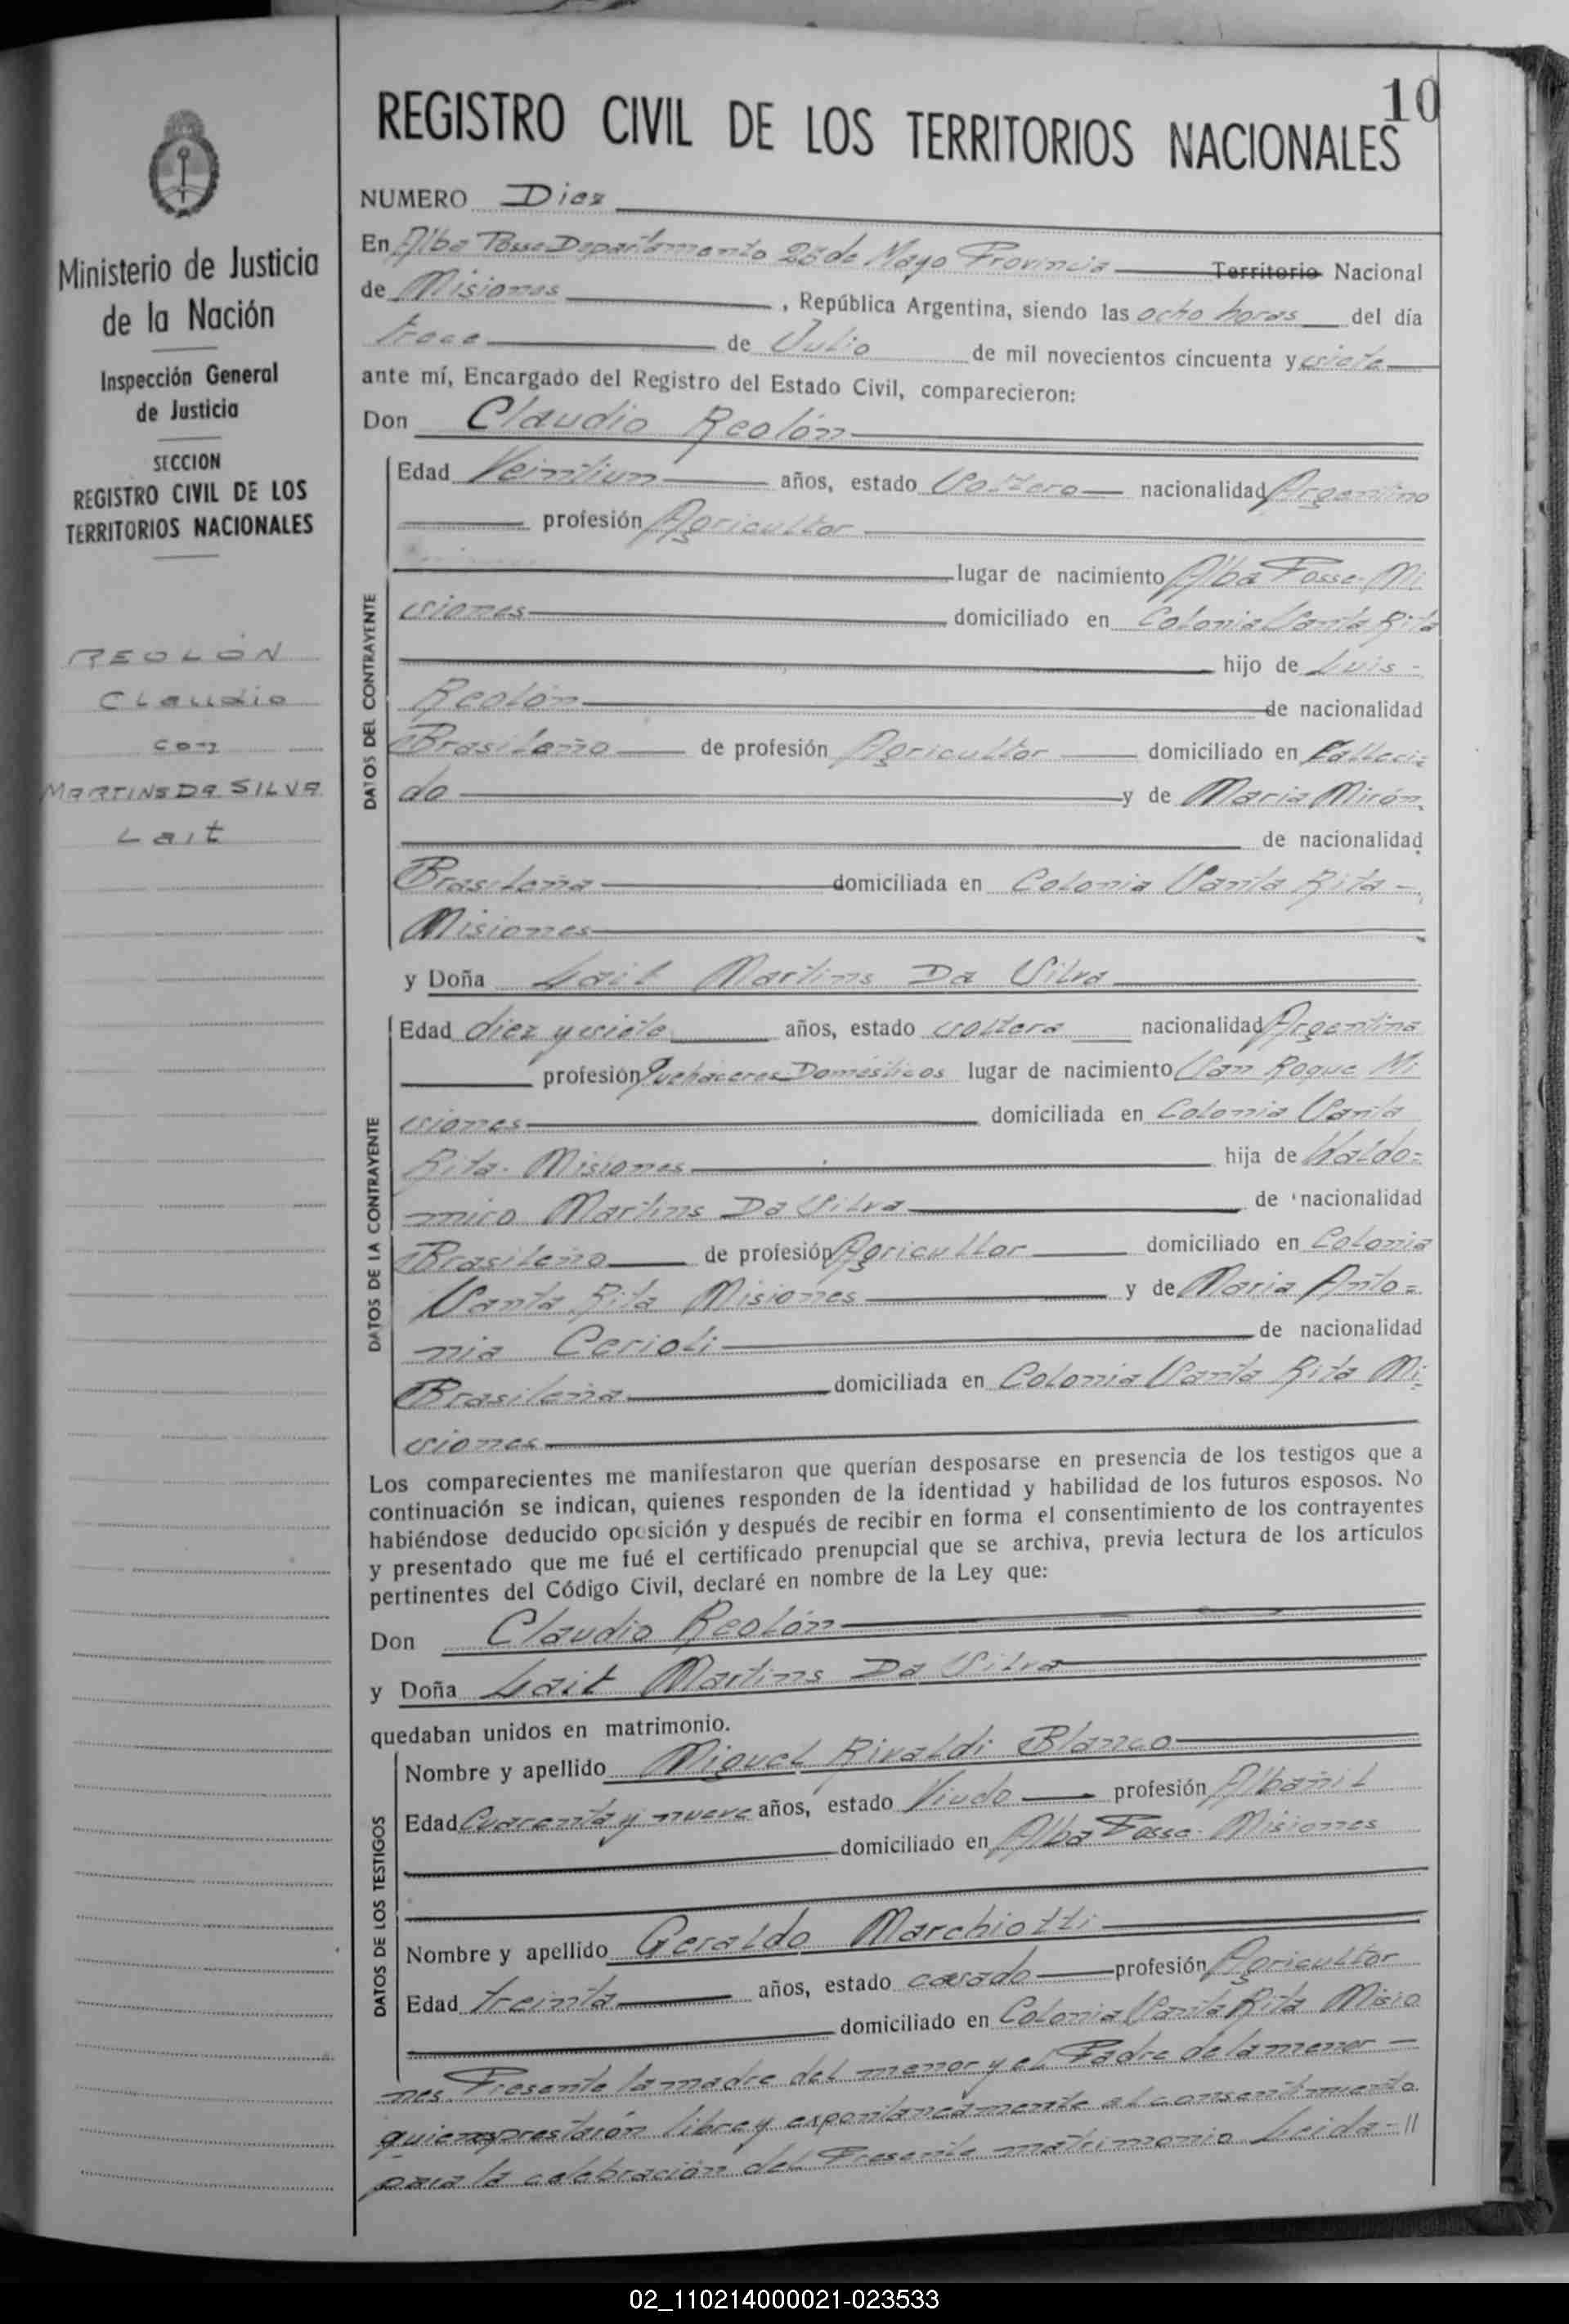 10
REGISTRO CIVIL DE LOS TERRITORIOS NACIONALES
Ministerio de Justicia
de la Nación
Inspección General
de Justicia
SECCION
REGISTRO CIVIL DE LOS
TERRITORIOS NACIONALES
REOLÓN
Claudio
con
MARTINS DA SILVA
Lait
NUMERO Diez
En Alba Posse Departamento 25 de Mayo Provincia Territorio Nacional
de Misiones, República Argentina, siendo las ocho horas del día
trece de Julio de mil novecientos cincuenta y siete
ante mí, Encargado del Registro del Estado Civil, comparecieron:
Don Claudio Reolón
DATOS DEL CONTRAYENTE
Edad Veintiun años, estado Soltero nacionalidad Argentino
profesión Agricultor
lugar de nacimiento Alba Posse-Mi
siones domiciliado en Colonia Santa Rita
hijo de Luis
Reolón de nacionalidad
Brasileño de profesión Agricultor domiciliado en Falleci=
do y de Maria Mirón
de nacionalidad
Brasileña domiciliada en Colonia Santa Rita -
Misiones
y Doña Lait Martins Da Silva
DATOS DE LA CONTRAYENTE
Edad diez y siete años, estado soltera nacionalidad Argentina
profesión Quehaceres Domésticos lugar de nacimiento San Roque Mi
siones domiciliada en Colonia Santa
Rita- Misiones hija de Waldo=
miro Martins Da Silva de nacionalidad
Brasileño de profesión Agricultor domiciliado en Colonia
Santa Rita Misiones y de Maria Anto=
nia Cerioli de nacionalidad
Brasileña domiciliada en Colonia Santa Rita Mi=
siones
Los comparecientes me manifestaron que querían desposarse en presencia de los testigos que a
continuación se indican, quienes responden de la identidad y habilidad de los futuros esposos. No
habiéndose deducido oposición y después de recibir en forma el consentimiento de los contrayentes
y presentado que me fué el certificado prenupcial que se archiva, previa lectura de los artículos
pertinentes del Código Civil, declaré en nombre de la Ley que:
Don Claudio Reolón
y Doña Lait Martins Da Silva
quedaban unidos en matrimonio.
DATOS DE LOS TESTIGOS
Nombre y apellido Miguel Rivaldi Blanco
Edad Cuarenta y nueve años, estado Viudo profesión Albañil
domiciliado en Alba Posse- Misiones
Nombre y apellido Geraldo Marchiotti
Edad treinta años, estado casado profesión Agricultor
domiciliado en Colonia Santa Rita Misio
nes Presente la madre del menor y el Padre de la menor -
quienes prestarón libre y expontaneamente el consentimiento
para la celebración del Presente matrimonio Leida-//
02_110214000021-023533